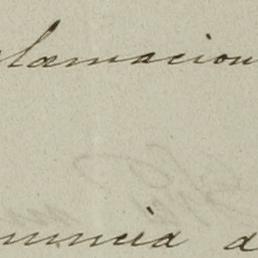 clamacion
nuncia d